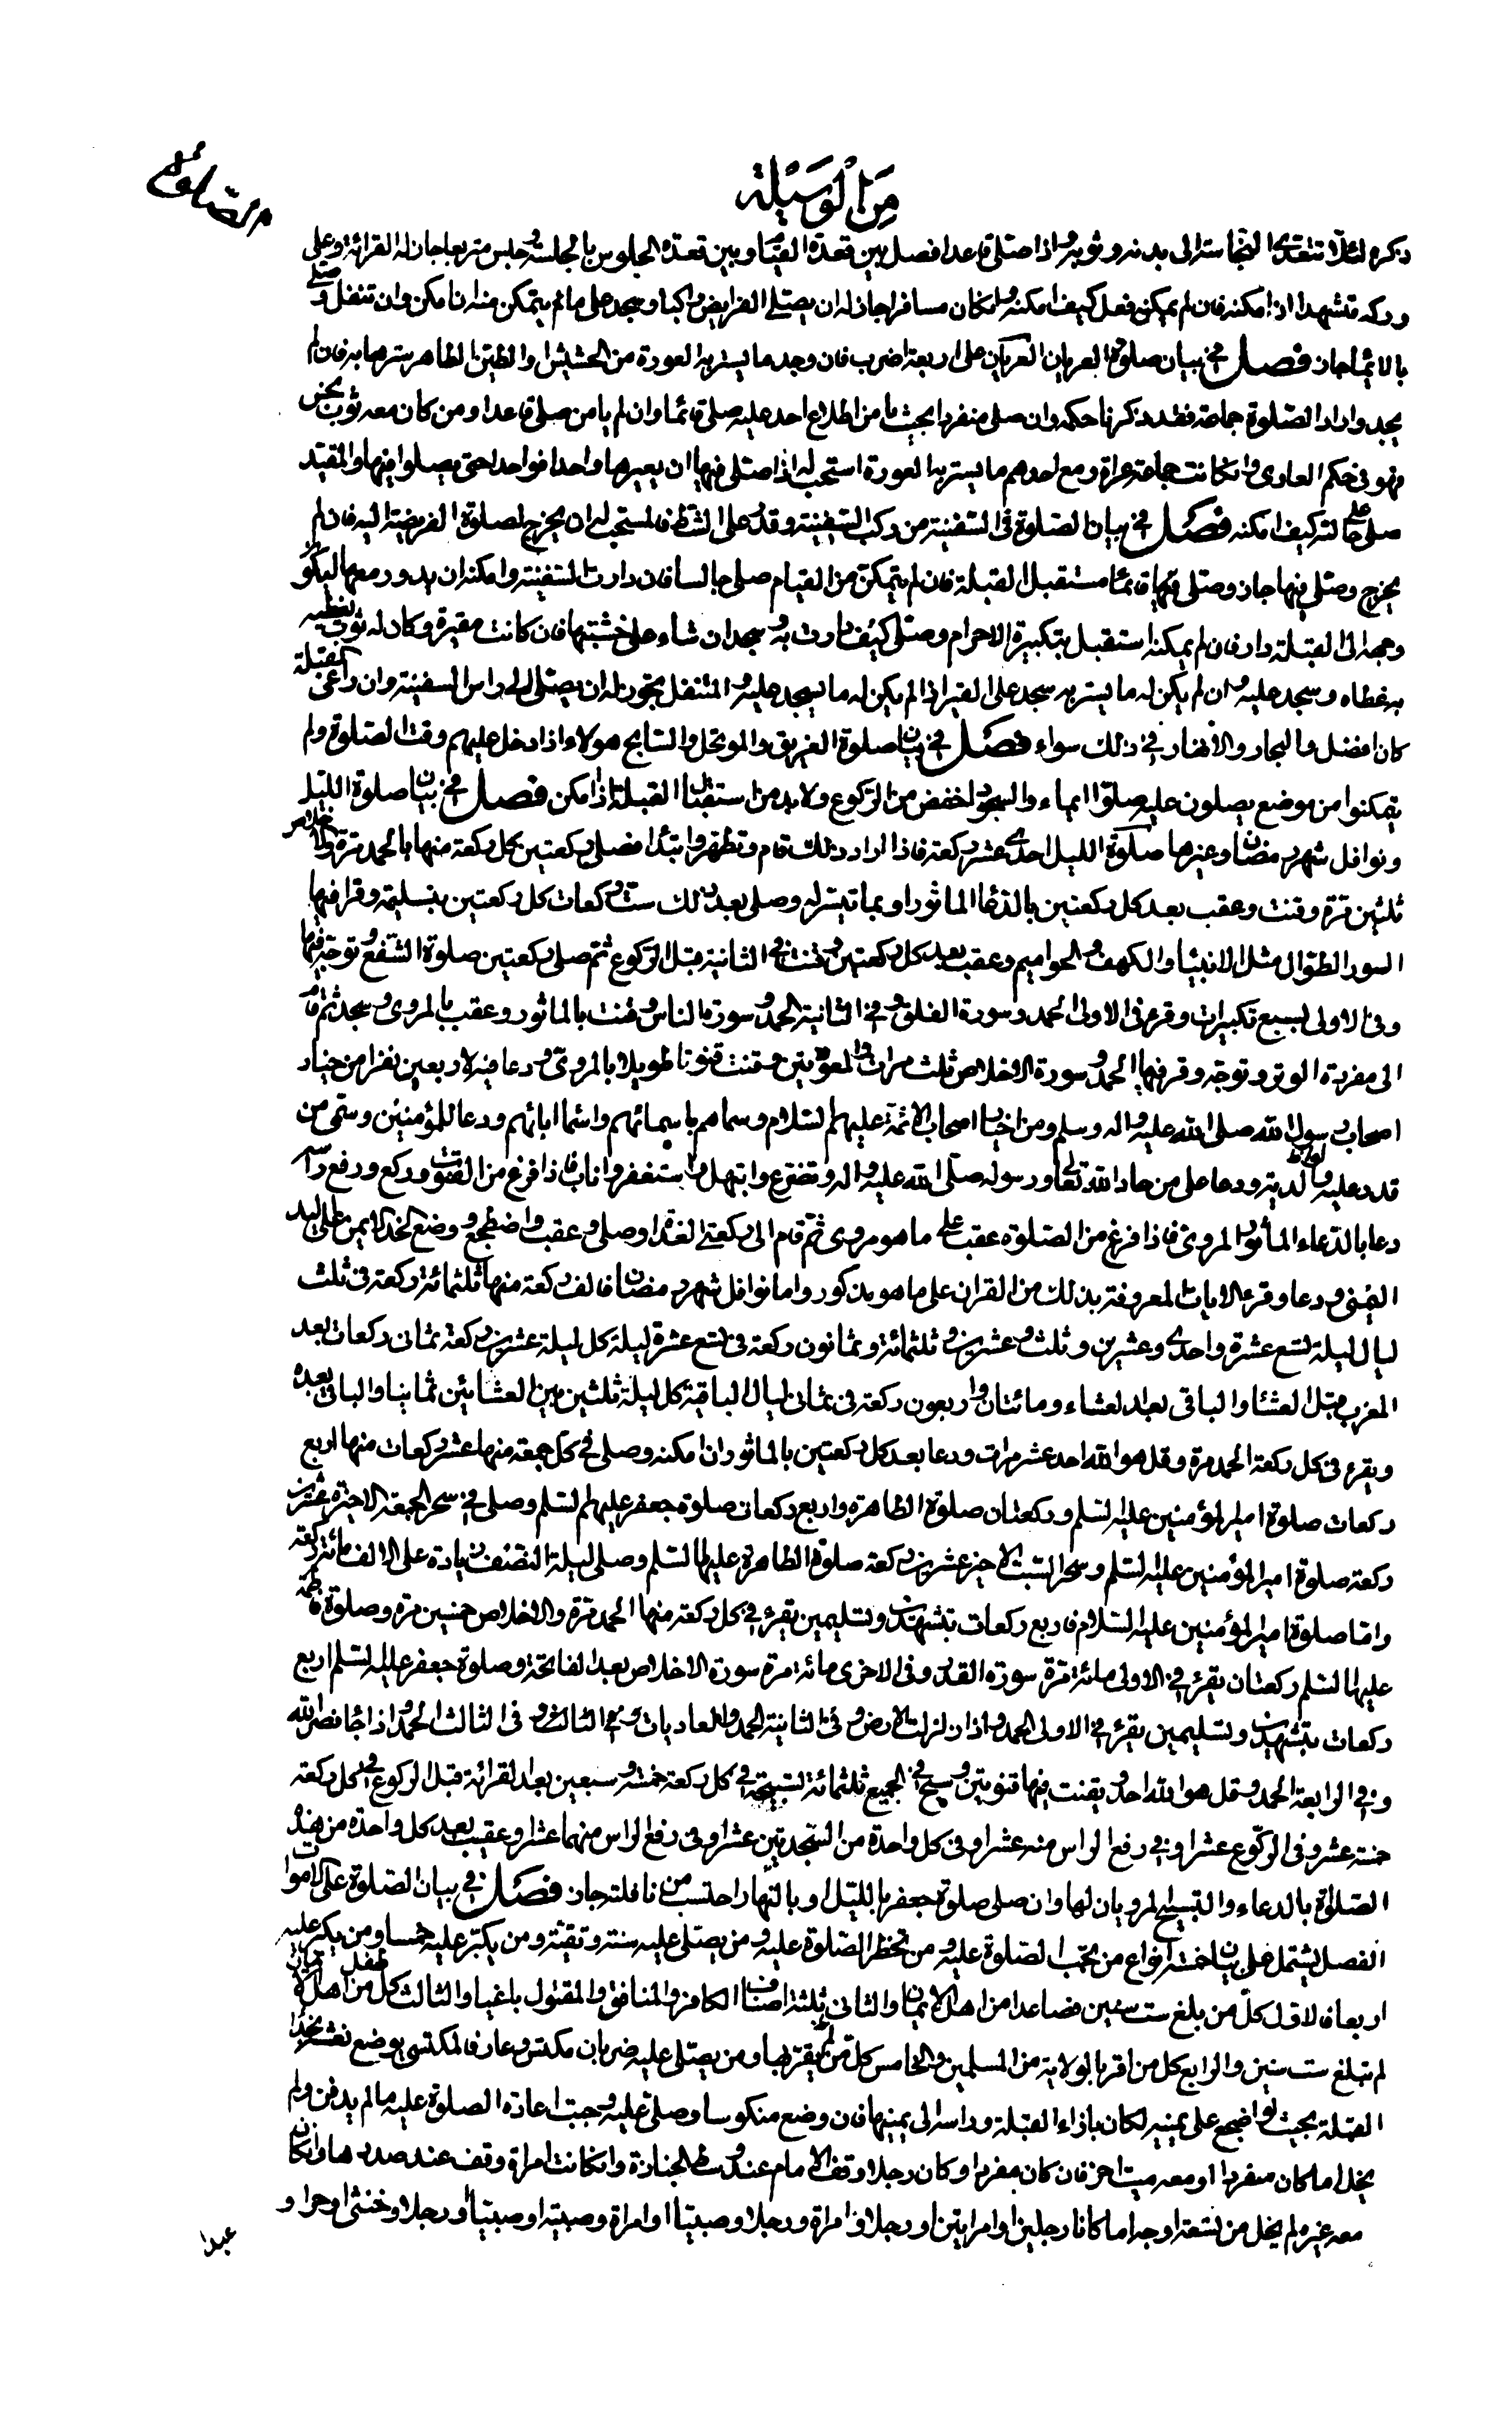 من الوسيلة
الصلوة
ذكره لئلا تتعدى النجاسة الى بدنه وثوبه واذا صلى قاعدا فصل بين قعدة القيام وبين قعدة الجلوس بالجلسة وجلس متربعا حال القرائة وعلى
وركه متشهدا اذا امكنه فان لم يمكن فعل كيف امكنه وان كان مسافرا جاز له ان يصلي الفرايض راكبا وسجد على ما يتمكن منه ان امكن وان تنفل وصلى
بالايماء جاز فصل في بيان صلوة العريان العريان على اربعة اضرب فان وجد ما يستر به العورة من الحشيش او الطين الطاهر سترها به فان لم
يجد واراد الصلوة جماعة فقد ذكرنا حكمه وان صلى منفردا بحيث يامن اطلاع احد عليه صلى قائما وان لم يامن صلى قاعدا ومن كان معه ثوب نجس
فهو في حكم العارى وان كانت جماعة عراة ومع احدهم ما يستر به العورة استحب له اذا صلى فيها ان يعيرها واحدا فواحدا حتى يصلوا فيها والمقيد
صلى على حالته كيف امكنه فصل في بيان الصلوة في السفينة من ركب السفينة وقدر على الشط فالمستحب له ان يخرج لصلوة الفريضة اليه فان لم
يخرج وصلى فيها جاز وصلى فيها قائما مستقبل القبلة فان لم يتمكن من القيام صلى جالسا فان دارت السفينة وامكنه ان يدور معها ليكون
وجهه الى القبلة دار فان لم يمكنه استقبل بتكبيرة الاحرام وصلى كيف دارت به وسجد ان شاء على خشبتها فان كانت مقيرة وكان له ثوب يغطيه
به غطاه وسجد عليه وان لم يكن له ما يستر به سجد على القير اذا لم يكن له ما يسجد عليه والمتنفل يجوز له ان يصلى الى راس السفينة وان راعى القبلة
كان افضل والبحار والانهار في ذلك سواء فصل في بيان صلوة الغريق والموتحل والسابح هولاء اذا دخل عليهم وقت الصلوة ولم
يتمكنوا من موضع يصلون عليه صلوا ايماء والسجود اخفض من الركوع ولا بد من استقبال القبلة اذا امكن فصل في بيان صلوة الليل
ونوافل شهر رمضان وغيرها صلوة الليل احدى عشر ركعة فاذا اراد ذلك قام وتطهر وابتدا فصلى ركعتين بكل ركعة منها بالحمد مرة والاخلاص
ثلثين مرة وقنت وعقب بعد كل ركعتين بالدعا الماثور او بما تيسر له وصلى بعد ذلك ست ركعات كل ركعتين بتسليمة وقرا فيها
السور الطوال مثل الانبيا والكهف والحواميم وعقب بعد كل ركعتين وقنت في الثانية قبل الركوع ثم صلى ركعتين صلوة الشفع وتوجه فيها
وفى الاولى بسبع تكبيرات وقرء في الاولى الحمد وسورة الفلق وفي الثانية الحمد وسورة الناس وقنت بالماثور وعقب بالمروى وسجد ثم قام
الى مفردة الوتر وتوجه وقرء فيها الحمد وسورة الاخلاص ثلث مرات والمعوذتين وقنت قنوتا طويلا بالمروى ودعا فيه لاربعين نفرا من خيار
اصحاب رسول الله صلى الله عليه واله وسلم ومن اخيار اصحاب الائمة عليهم السلام وسماهم باسمائهم واسماء ابائهم ودعا للمؤمنين وسمى من
قدر عليه ولوالديه ودعا على من حاد الله تعالى ورسوله صلى الله عليه واله وتضرع وابتهل واستغفر واناب فاذا فرغ من القنوت وركع ورفع راسه
دعا بالدعاء الماثور المروى فاذا فرغ من الصلوة عقب على ما هو مروى ثم قام الى ركعتى الغداة وصلى وعقب واضطجع ووضع الخد الايمن على اليد
اليمنى ودعا وقرء الايات المعروفة بذلك من القران على ما هو مذكور واما نوافل شهر رمضان فالف ركعة منها ثلثمائة ركعة في ثلث
ليال ليلة تسع عشرة واحدى وعشرين وثلث وعشرين وثلثمائة وثمانون ركعة في تسع عشرة ليلة كل ليلة عشرين ركعة ثمانى ركعات بعد
المغرب قبل العشاء والباقى بعد العشاء ومائتان واربعون ركعة في ثمانى ليال الباقية كل ليلة ثلثين بين العشائين ثمانيا والباقى بعده
ويقرء في كل ركعة الحمد مرة وقل هو الله احد عشر مرات ودعا بعد كل ركعتين بالماثور ان امكنه وصلى في كل جمعة منها عشر ركعات منها اربع
ركعات صلوة امير المؤمنين عليه السلم وركعتان صلوة الطاهرة واربع ركعات صلوة جعفر عليهم السلم وصلى في سحر الجمعة الاخيرة عشرين
ركعة صلوة امير المؤمنين عليه السلم وسحر السبت الاخير عشرين ركعة صلوة الطاهرة عليها السلم وصلى ليلة النصف زيادة على الالف مائة ركعة
واما صلوة امير المؤمنين عليه السلام فاربع ركعات بتشهدين وتسليمين يقرء في كل ركعة منها الحمد مرة والاخلاص خمسين مرة وصلوة فاطمة
عليها السلم ركعتان يقرء في الاولى مائة مرة سورة القدر وفى الاخرى مائة مرة سورة الاخلاص بعد الفاتحة وصلوة جعفر عليه السلم اربع
ركعات بتشهدين وتسليمين يقرء في الاولى الحمد واذا زلزلت الارض وفى الثانية الحمد والعاديات وفى الثالث الحمد واذا جاء نصر الله
وفي الرابعة الحمد وقل هو الله احد ويقنت فيها قنوتين وسبح في الجميع ثلثمائة تسبيحة في كل ركعة خمسة وسبعين بعد القرائة قبل الركوع في كل ركعة
خمسة عشر وفى الركوع عشرا وفي رفع الراس منه عشرا وفى كل واحدة من السجدتين عشرا وفى رفع الراس منهما عشرا وعقيب بعد كل واحدة من هذه
الصلوة بالدعاء والتسبيح المرويان لها وان صلى صلوة جعفر بالليل او بالنهار احتسب من نافلته جاز فصل في بيان الصلوة على الاموات
الفصل يشتمل على بيان خمسة انواع من تجب الصلوة عليه ومن تحظر الصلوة عليه ومن يصلى عليه سنة وتقية ومن يكبر عليه خمسا ومن يكبر عليه
اربعا فالاول كل من بلغ ست سنين فصاعدا من اهل الايمان والثانى ثلثة اصناف الكافر والمنافق والمقتول باغيا والثالث كل طفل من اهل الايمان
لم تبلغ ست سنين والرابع كل من اقر بالولاية من المسلمين والخامس كل من لم يقر بها ومن يصلى عليه ضربان مكتس وعار فالمكتسى يوضع نعشه بحذاء
القبلة بحيث لو اضجع على يمينه لكان بازاء القبلة وراسه الى يمينها فان وضع منكوسا وصلى عليه وجبت اعادة الصلوة عليه ما لم يدفن ولم
يخل اما كان مفردا او معه ميت اخر فان كان مفردا وكان رجلا وقف الامام عند وسط الجنازة وان كانت امراة وقف عند صدرها وان كان
معه غيره لم يخل من تسعة اوجه اما كانا رجلين او امرايتين او رجلا وامراة ورجلا وصبيا او امراة وصبية او صبيا ورجلا وخنثى او حرا و
عبدا